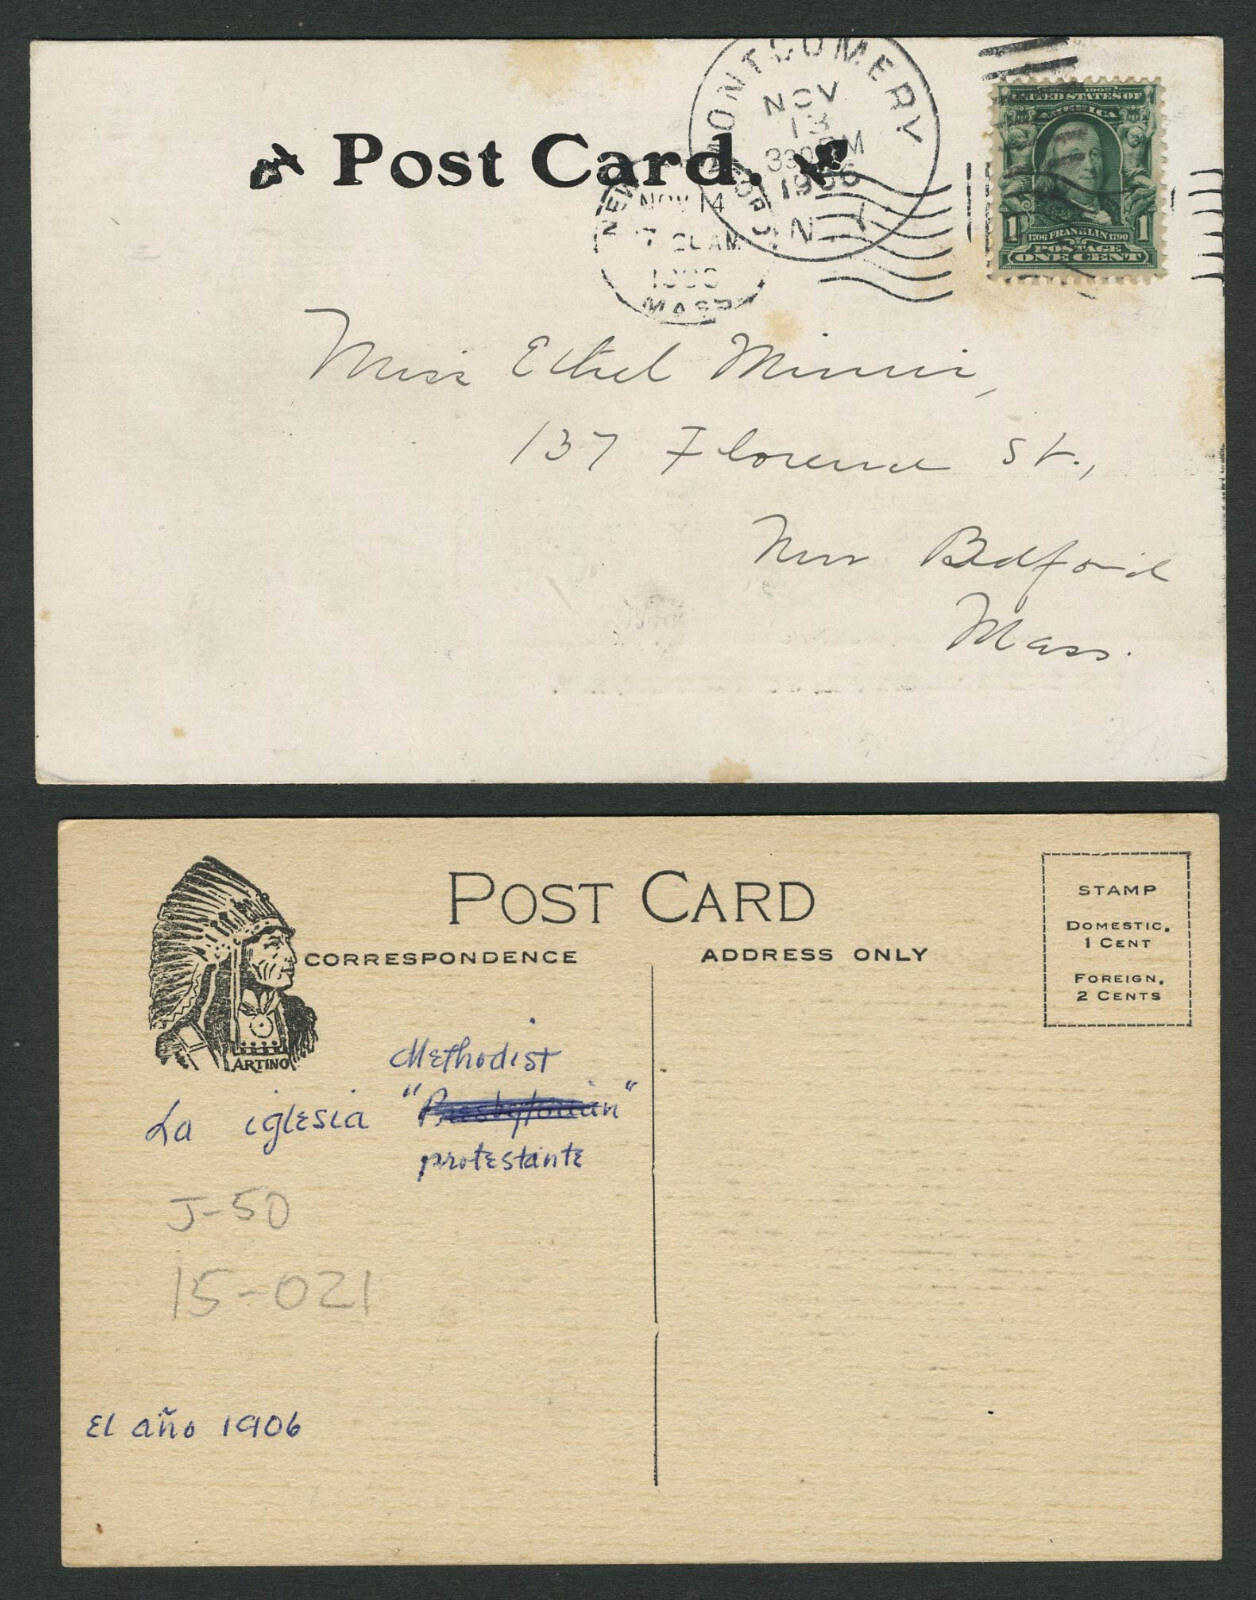 Post Card.
MONTGOMERY
NOV
13
1906
N.Y.
NOV 14
AM
MASS
UNITED STATES OF
AMERICA
1 1706 FRANKLIN 1790 1
POSTAGE
ONE CENT
Miss Ethel
137 Florence St.,
New Bedford
Mass.
POST CARD
CORRESPONDENCE
ADDRESS ONLY
STAMP
DOMESTIC,
1 CENT
FOREIGN,
2 CENTS
ARTINO
Methodist
La iglesia "Presbyterian"
protestante
J-50
15-021
El año 1906